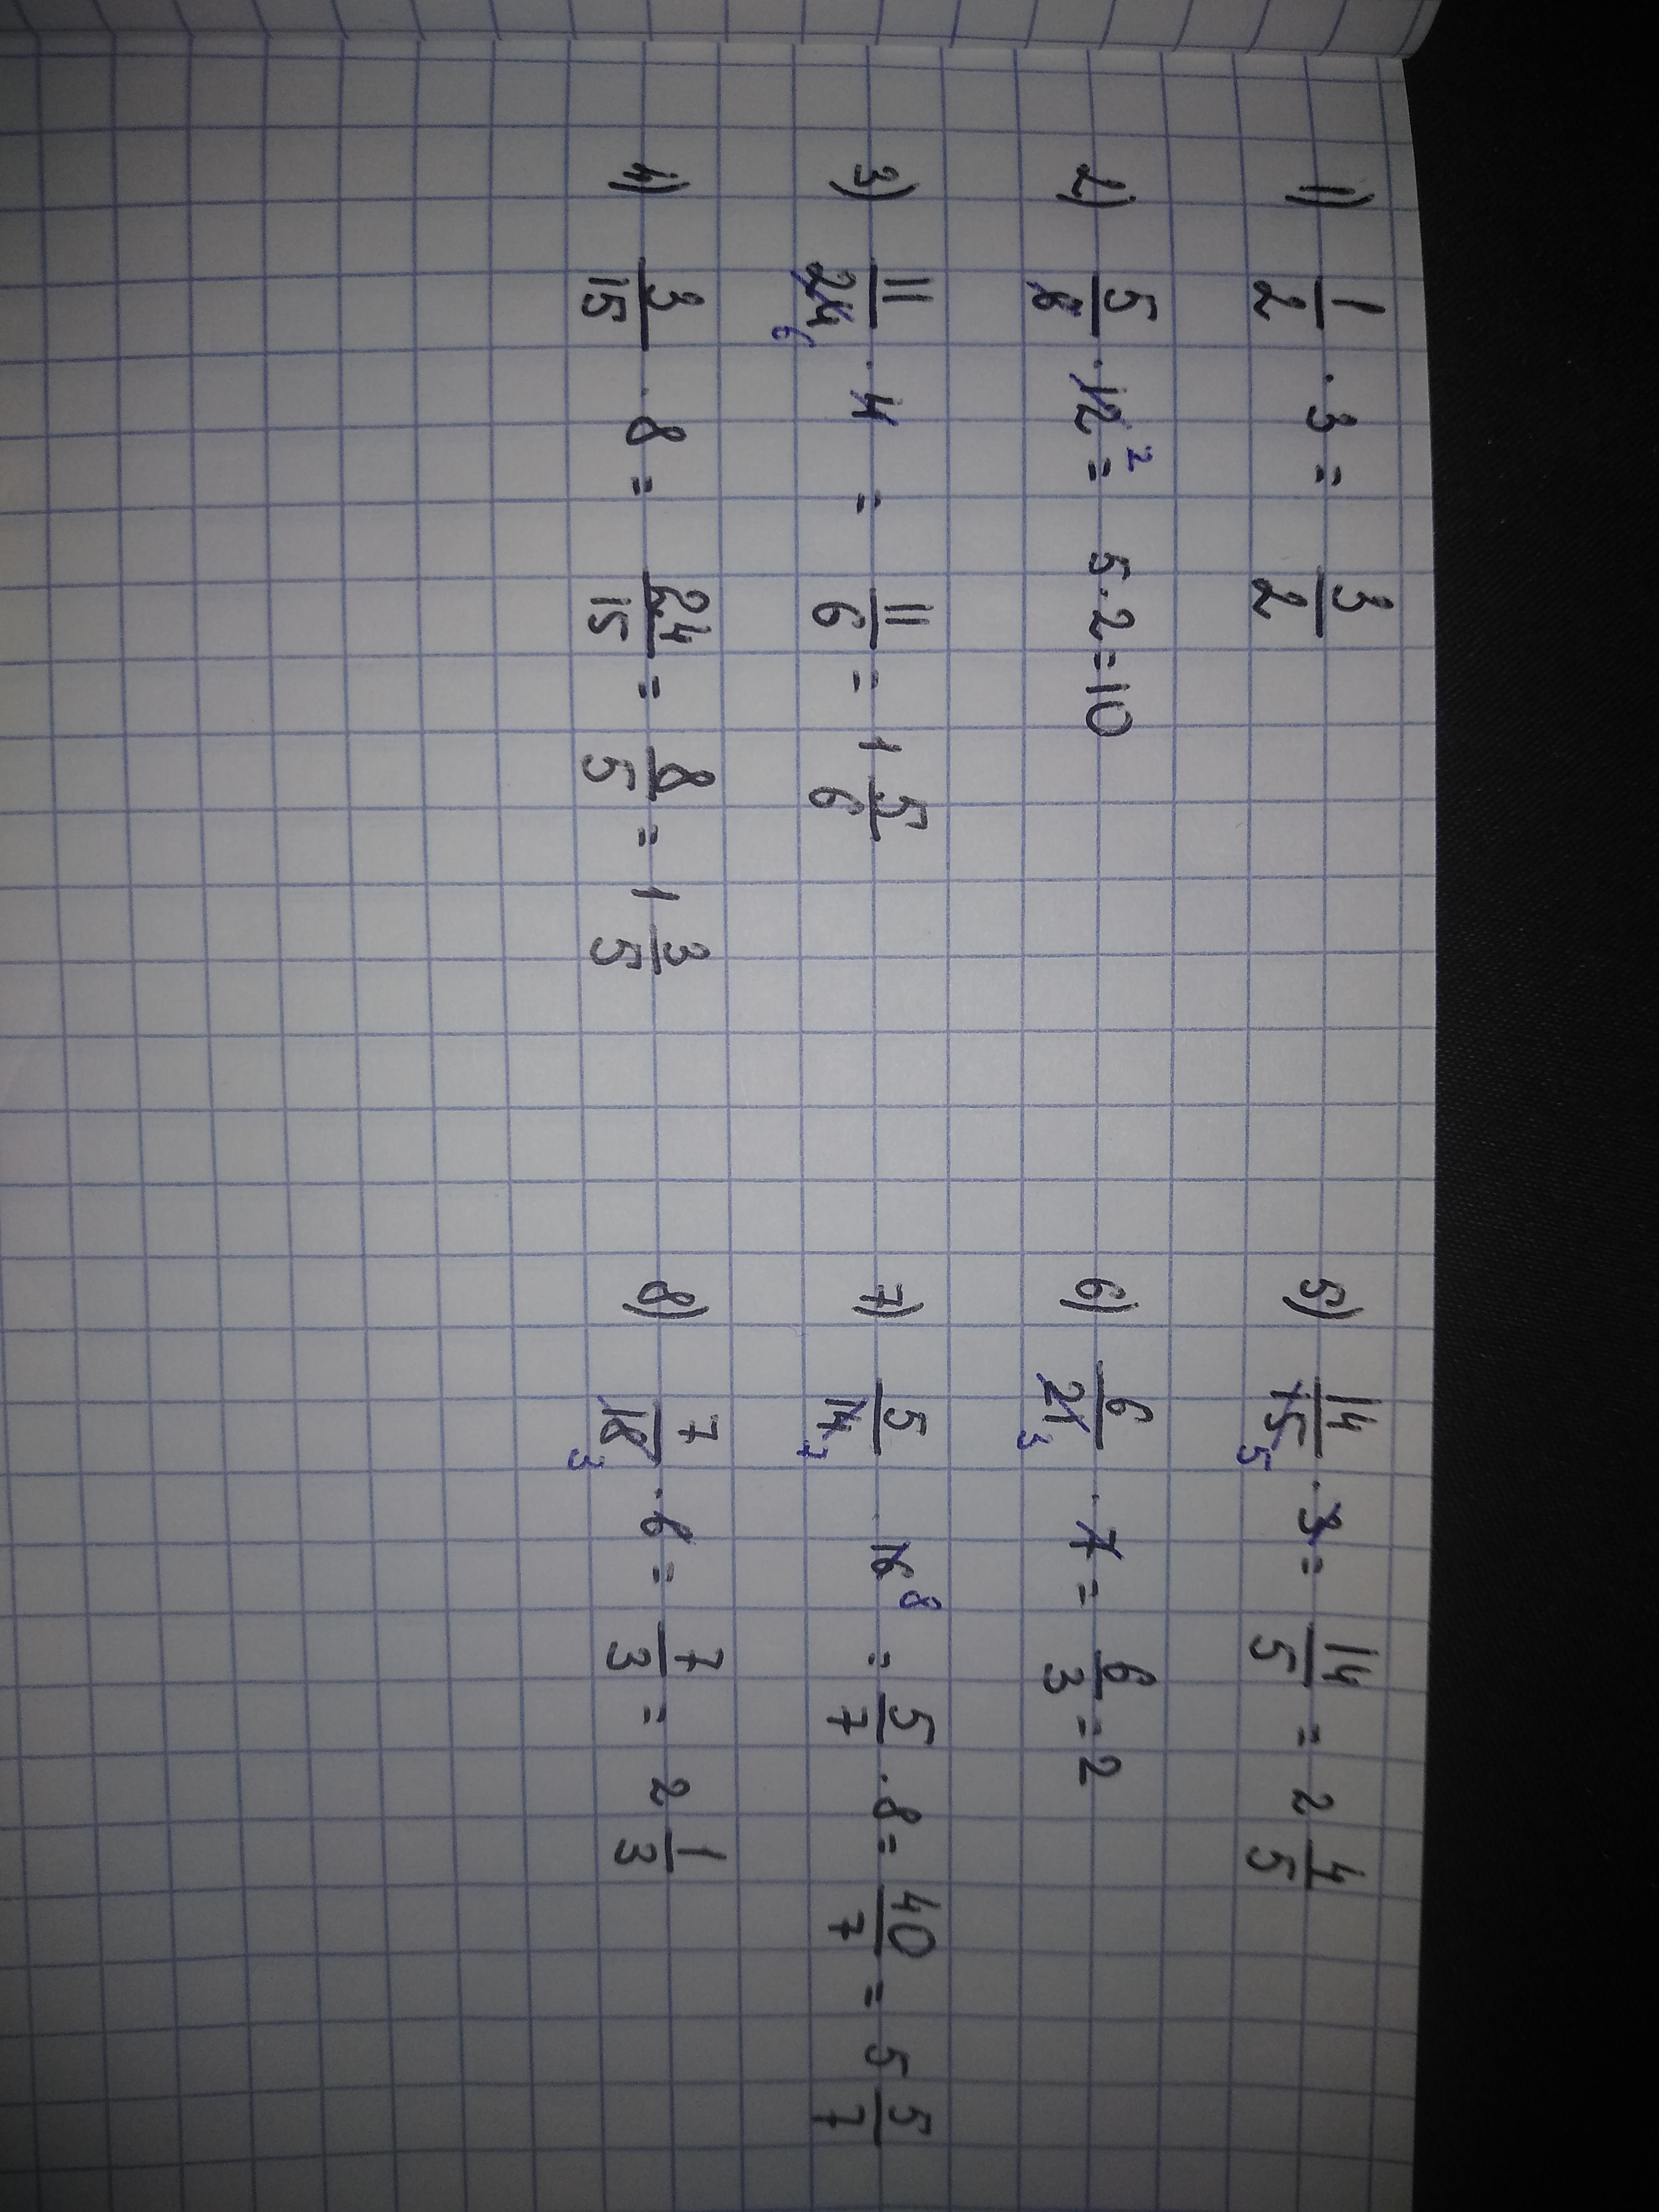 1) 1/2 · 3 = 3/2
2) 5/6 · 12 2 = 5 · 2 = 10
3) 11/24 6 · 4 = 11/6 = 1 5/6
4) 3/15 · 8 = 24/15 = 8/5 = 1 3/5
5) 14/15 5 · 3 = 14/5 = 2 4/5
6) 6/21 3 · 7 = 6/3 = 2
7) 5/14 7 · 16 8 = 5/7 · 8 = 40/7 = 5 5/7
8) 7/18 3 · 6 = 7/3 = 2 1/3